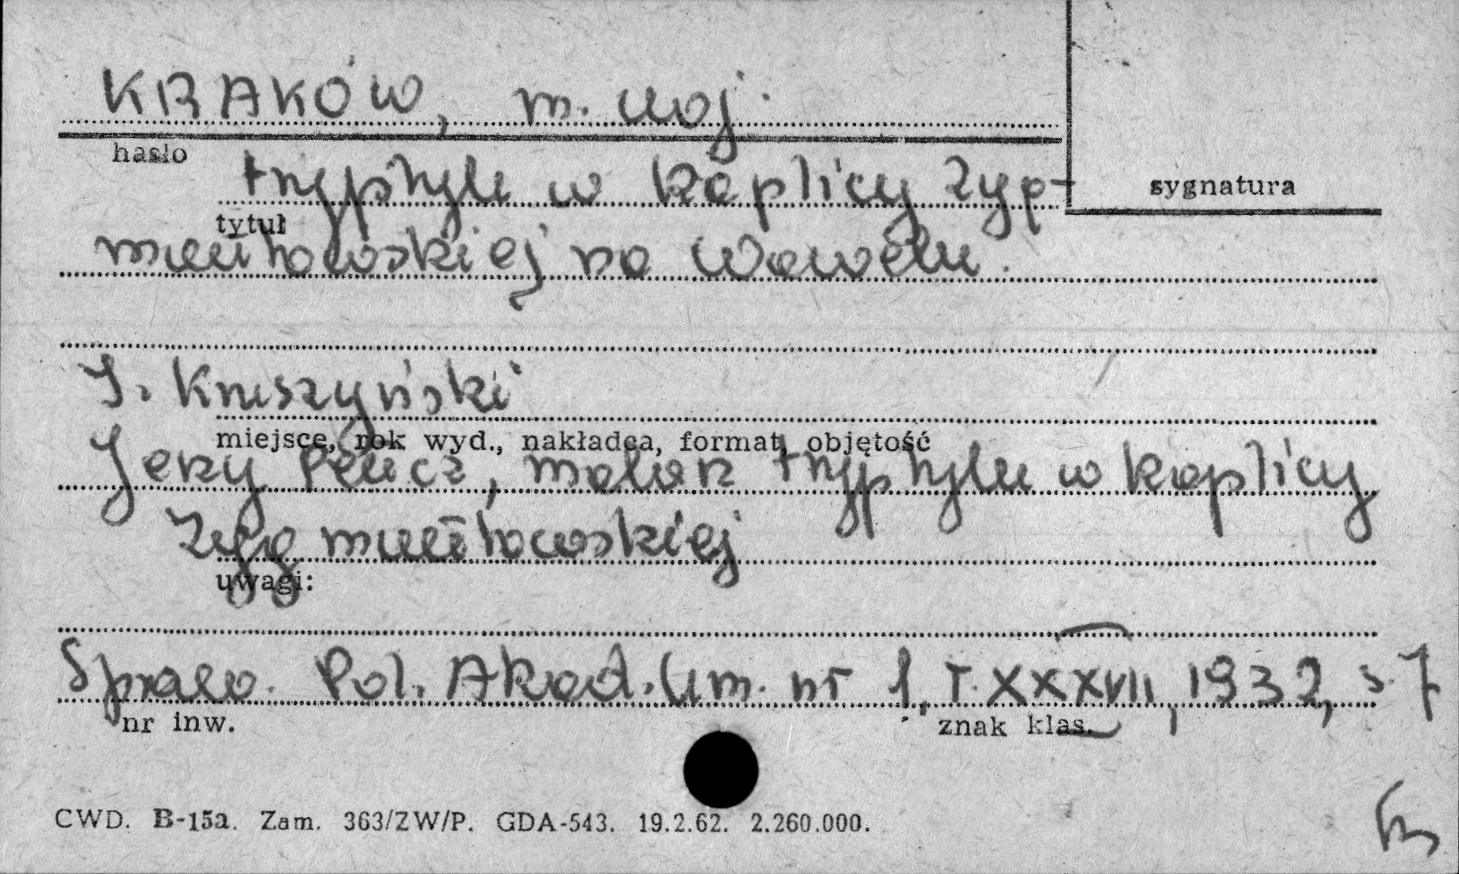 KRAKÓW, m. woj.
hasło
tryptyk w kaplicy Zyg-
sygnatura
tytuł
muntowskiej na Wawelu.
J. Kruszyński
miejsce, rok wyd., nakładca, format, objętość
Jerzy Pencz, malarz tryptyku w kaplicy
Zygmuntowskiej
uwagi:
Spraw. Pol. Akad. Um. nr 1, T. XXXVII, 1932, s. 7
nr inw.
znak klas.
CWD. B-15a. Zam. 363/ZW/P. GDA-543. 19.2.62. 2.260.000.